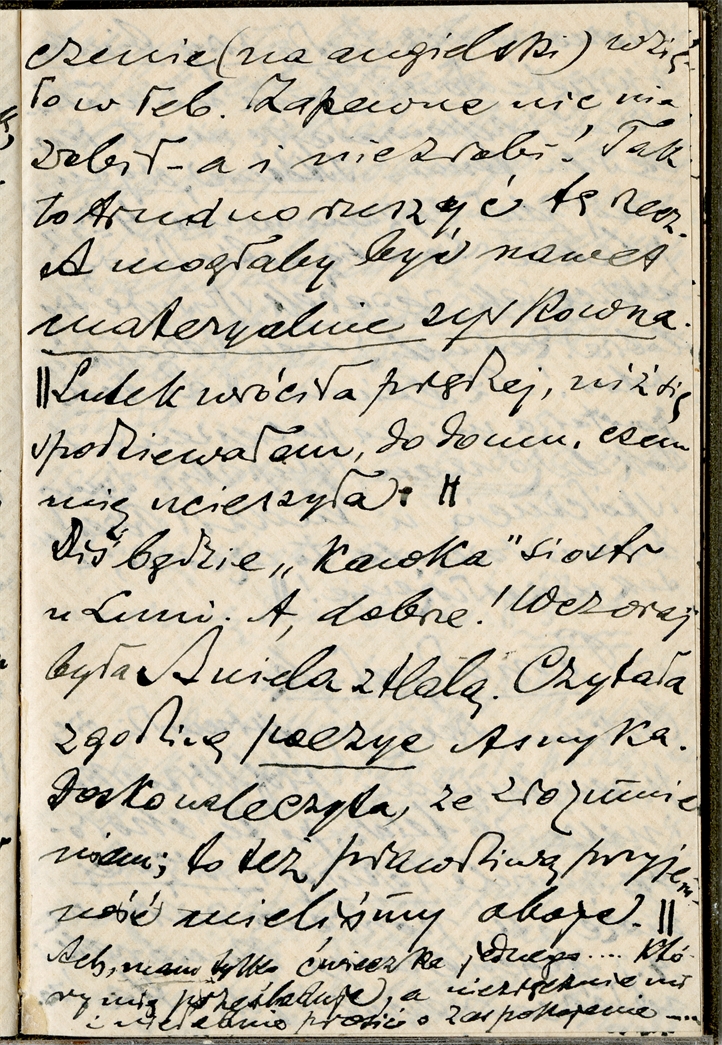 czenie (na angielski) wzię-
ło w łeb. Zapewne nic nie
zrobił - a i nie zrobi! Tak
to trudno ruszyć tę rzecz.
A mogłaby być nawet
materyalnie zyskowna.
|| Lutek wróciła prędzej, niż się
spodziewałam, do domu, czem
mię ucieszyła. ||
Dziś będzie „kawka" sióstr
u Luni. A, dobrze! Wczoraj
była Aniela z Halą. Czytała
z godzinę poezye Asnyka.
Doskonale czyta, ze zrozumie
niem; to też prawdziwą przyjem-
ność mieliśmy oboje. ||
Ach, mam tylko ćwieczka jednego.... któ-
ry mię prześladuje, a niezręcznie mi
i prosić o zaspokojenie ....